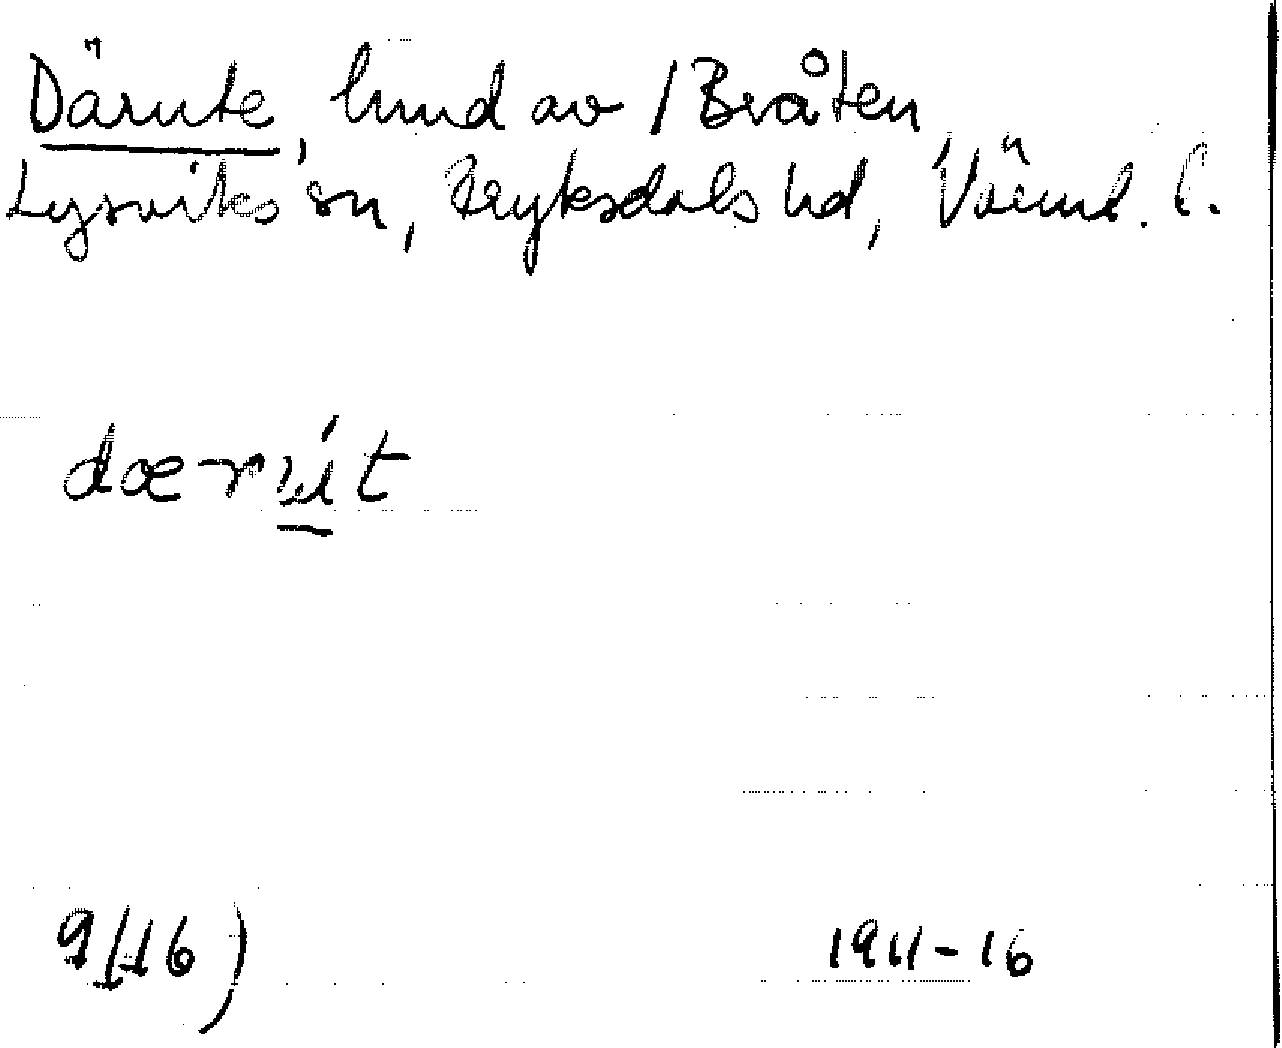 Därute, hmd av /Bråten
Lysviks sn, Fryksdals hd, Värml. l.
dærút
9/16)
1911-16